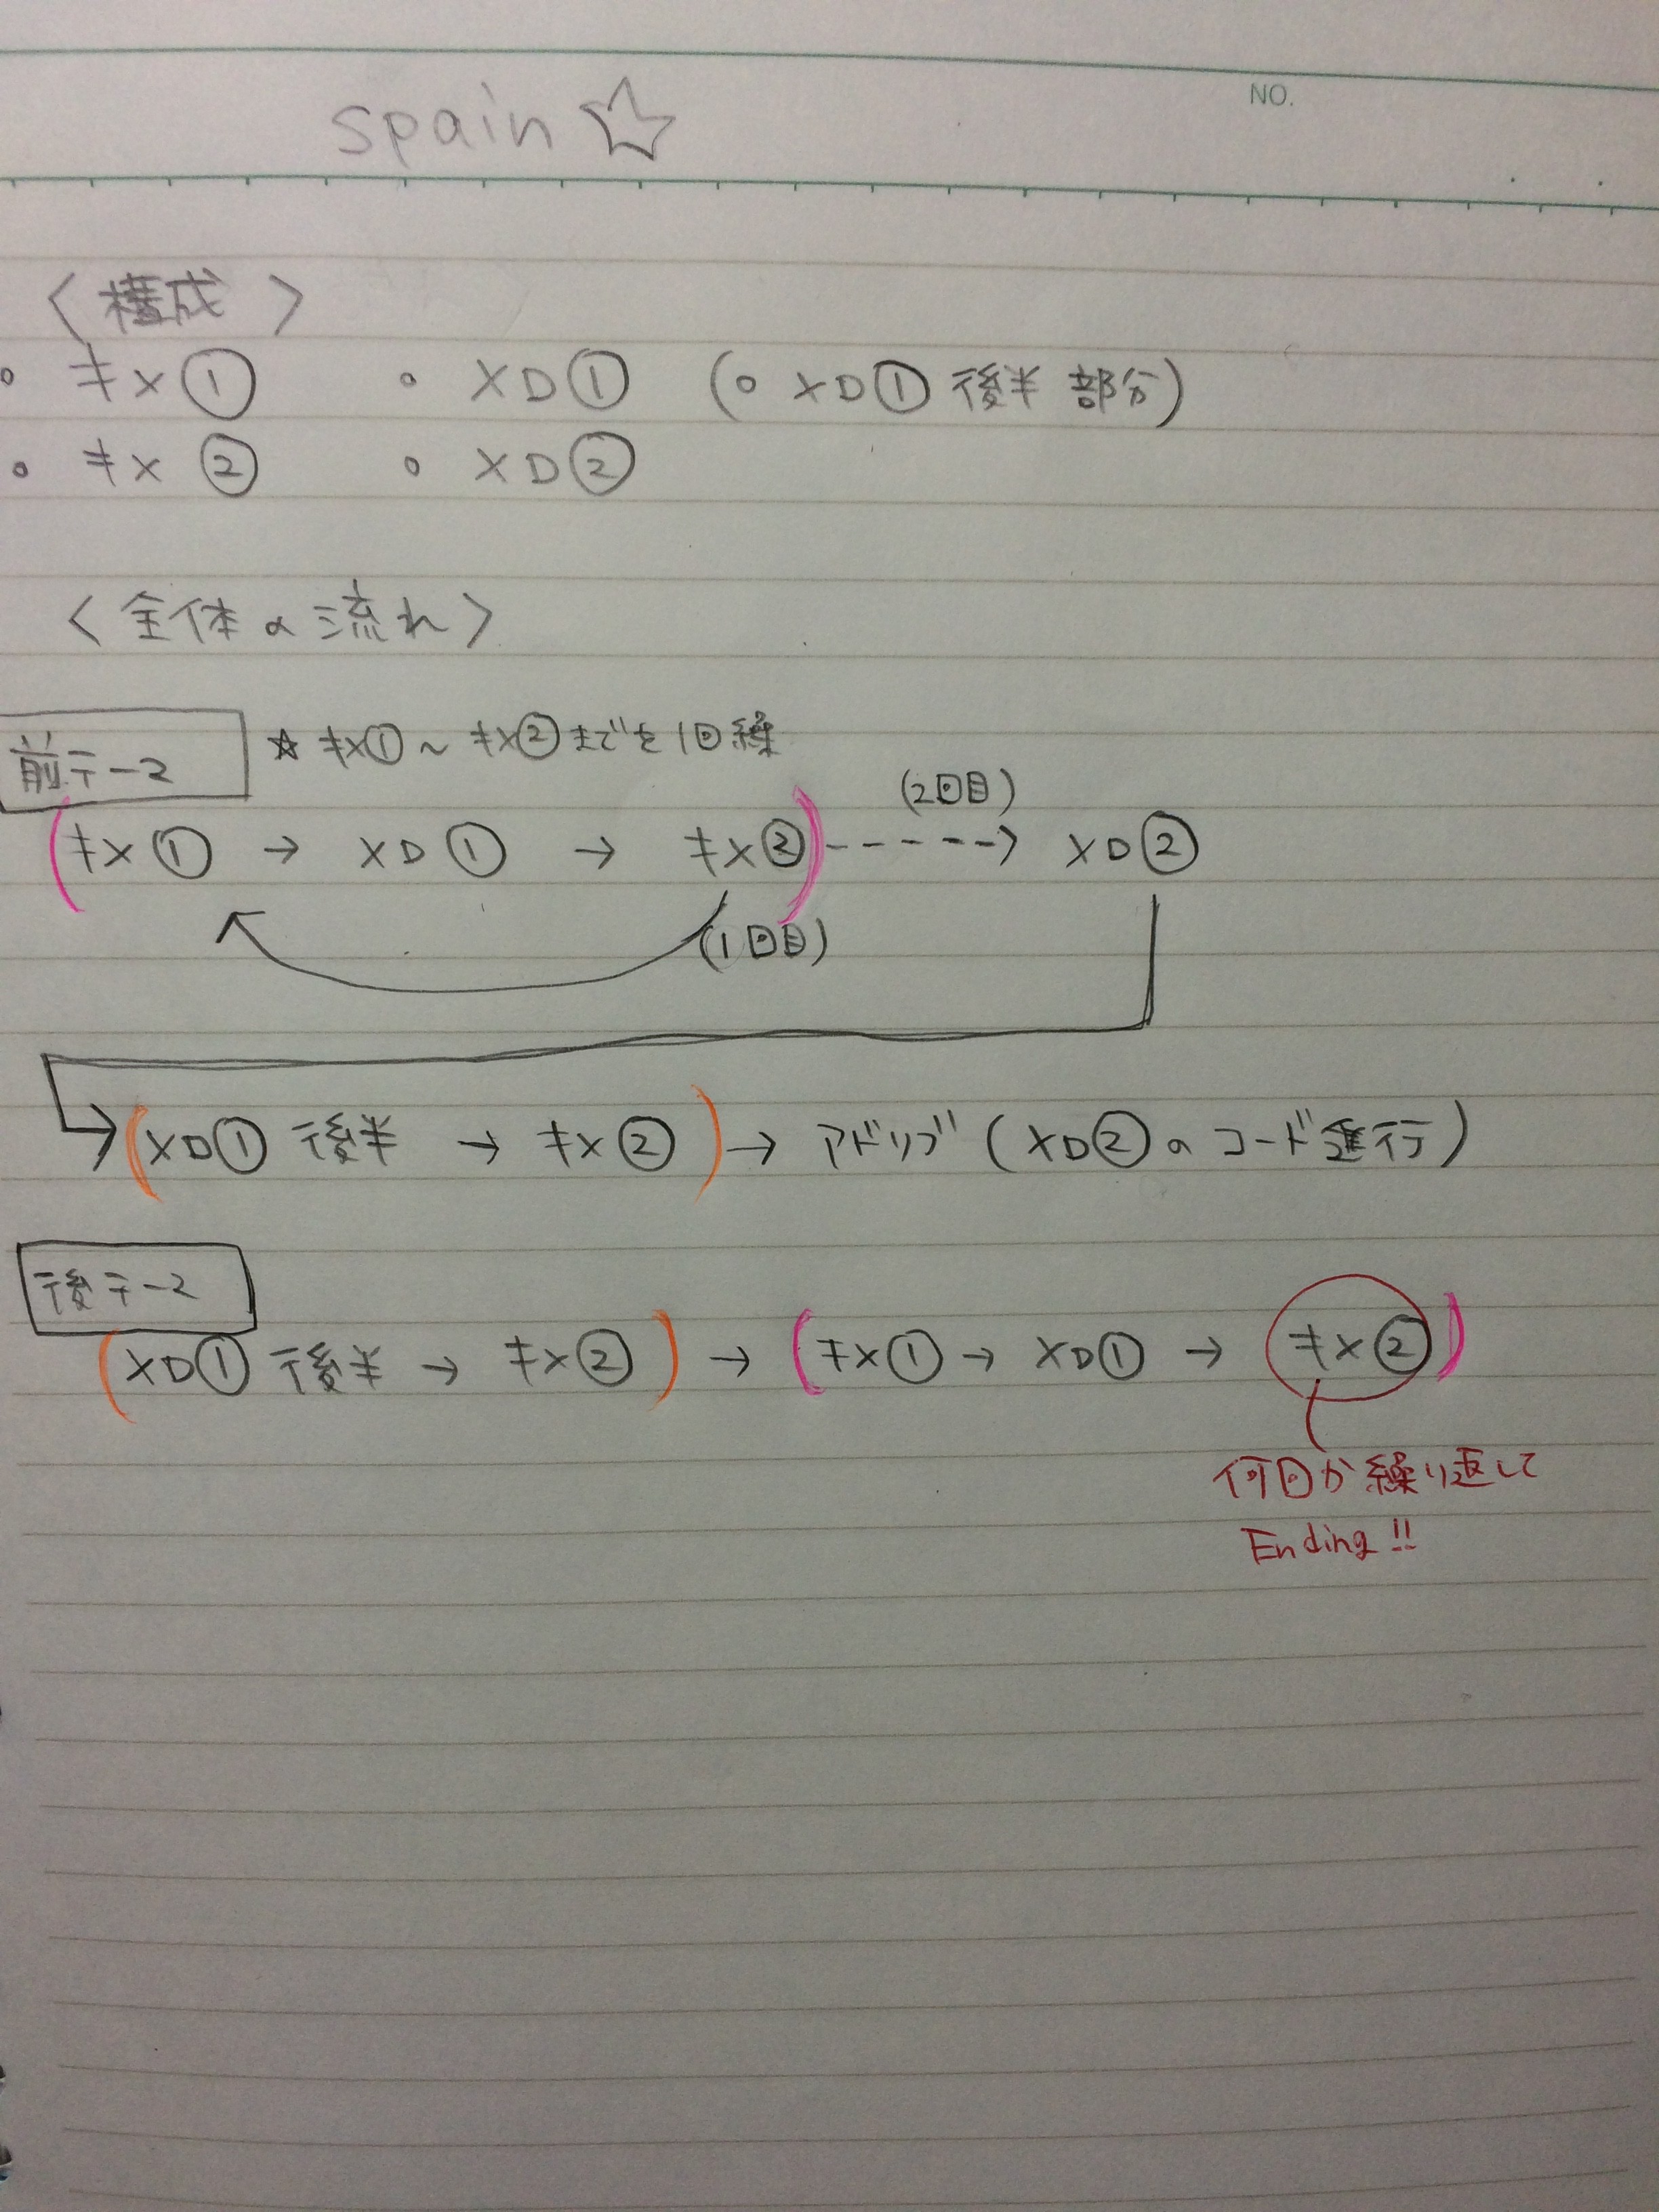 NO.
spain☆
〈 構成 〉
○ キメ① ○ メロ① (○ メロ① 後半 部分)
○ キメ② ○ メロ②
〈 全体の流れ 〉
前テーマ ☆ キメ①〜キメ②までを1回繰
(2回目)
(キメ① → メロ① → キメ②) ----→ メロ②
(1回目)
(メロ① 後半 → キメ②) → アドリブ (メロ②のコード進行)
後テーマ
(メロ① 後半 → キメ②) → (キメ① → メロ① → キメ②)
何回か繰り返して
Ending!!